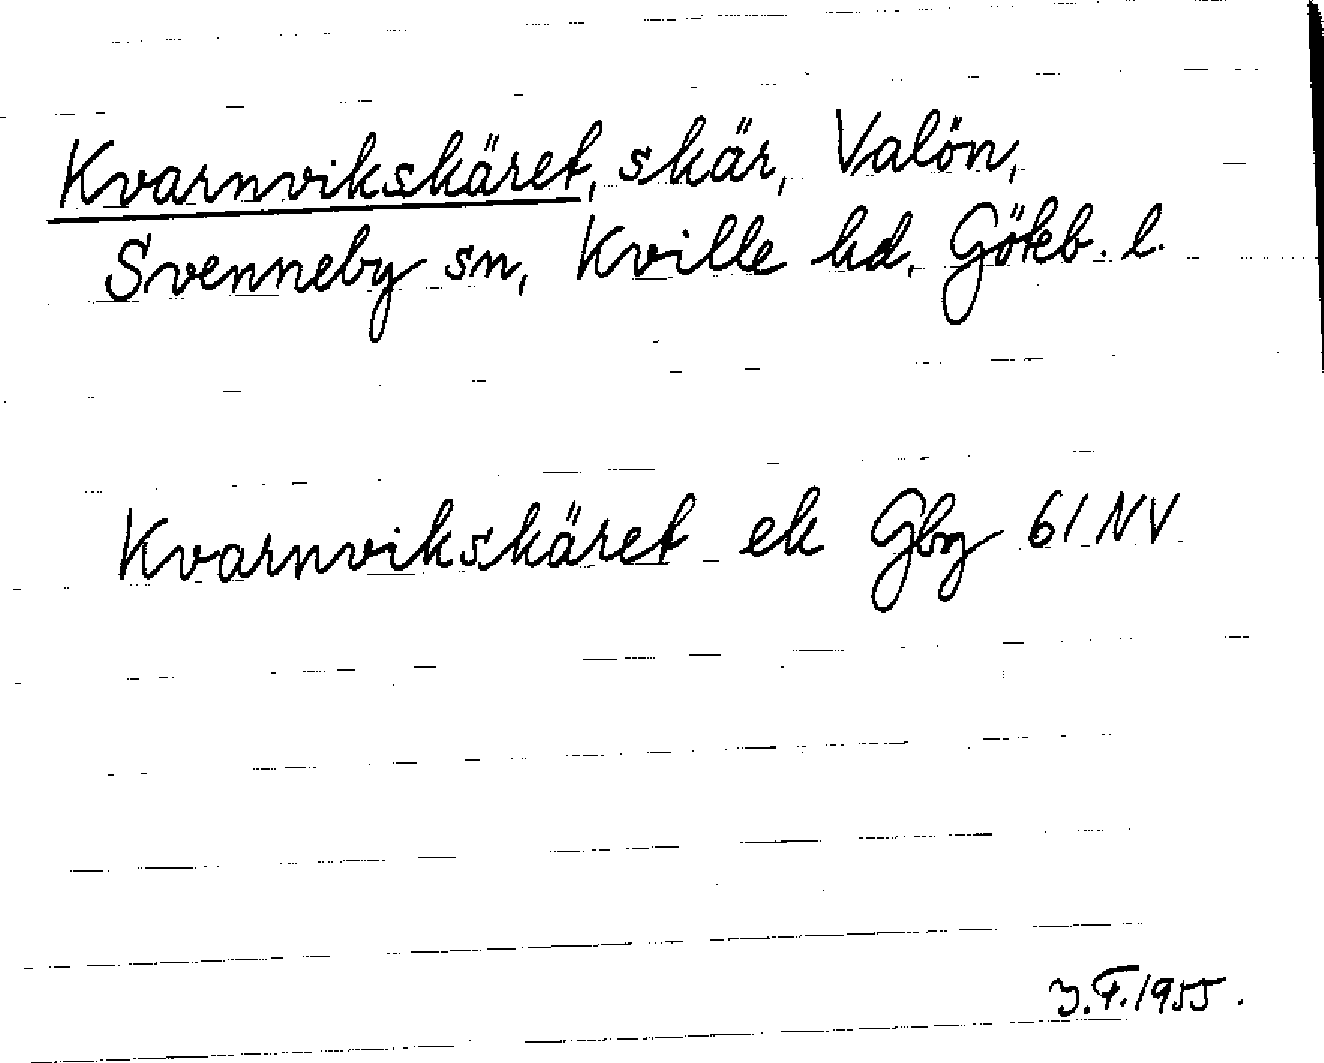 Kvarnvikskäret, skär, Valön,
Svenneby sn, Kville hd, Göteb. l.
Kvarnvikskäret ek Gbg 61 NV
Y.F. 1955.